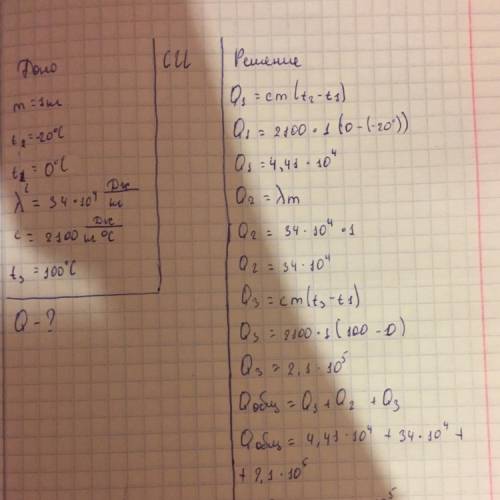 Дано
m = 1 кг
t₁ = -20°C
t₂ = 0°C
λ = 34 · 10⁴ Дж/кг
c = 2100 Дж/кг °C
t₃ = 100°C
Q - ?
СИ
Решение
Q₁ = cm(t₂ - t₁)
Q₁ = 2100 · 1 (0 - (-20°))
Q₁ = 4,41 · 10⁴
Q₂ = λm
Q₂ = 34 · 10⁴ · 1
Q₂ = 34 · 10⁴
Q₃ = cm(t₃ - t₁)
Q₃ = 2100 · 1 (100 - 0)
Q₃ = 2,1 · 10⁵
Qобщ = Q₁ + Q₂ + Q₃
Qобщ = 4,41 · 10⁴ + 34 · 10⁴ +
+ 2,1 · 10⁵